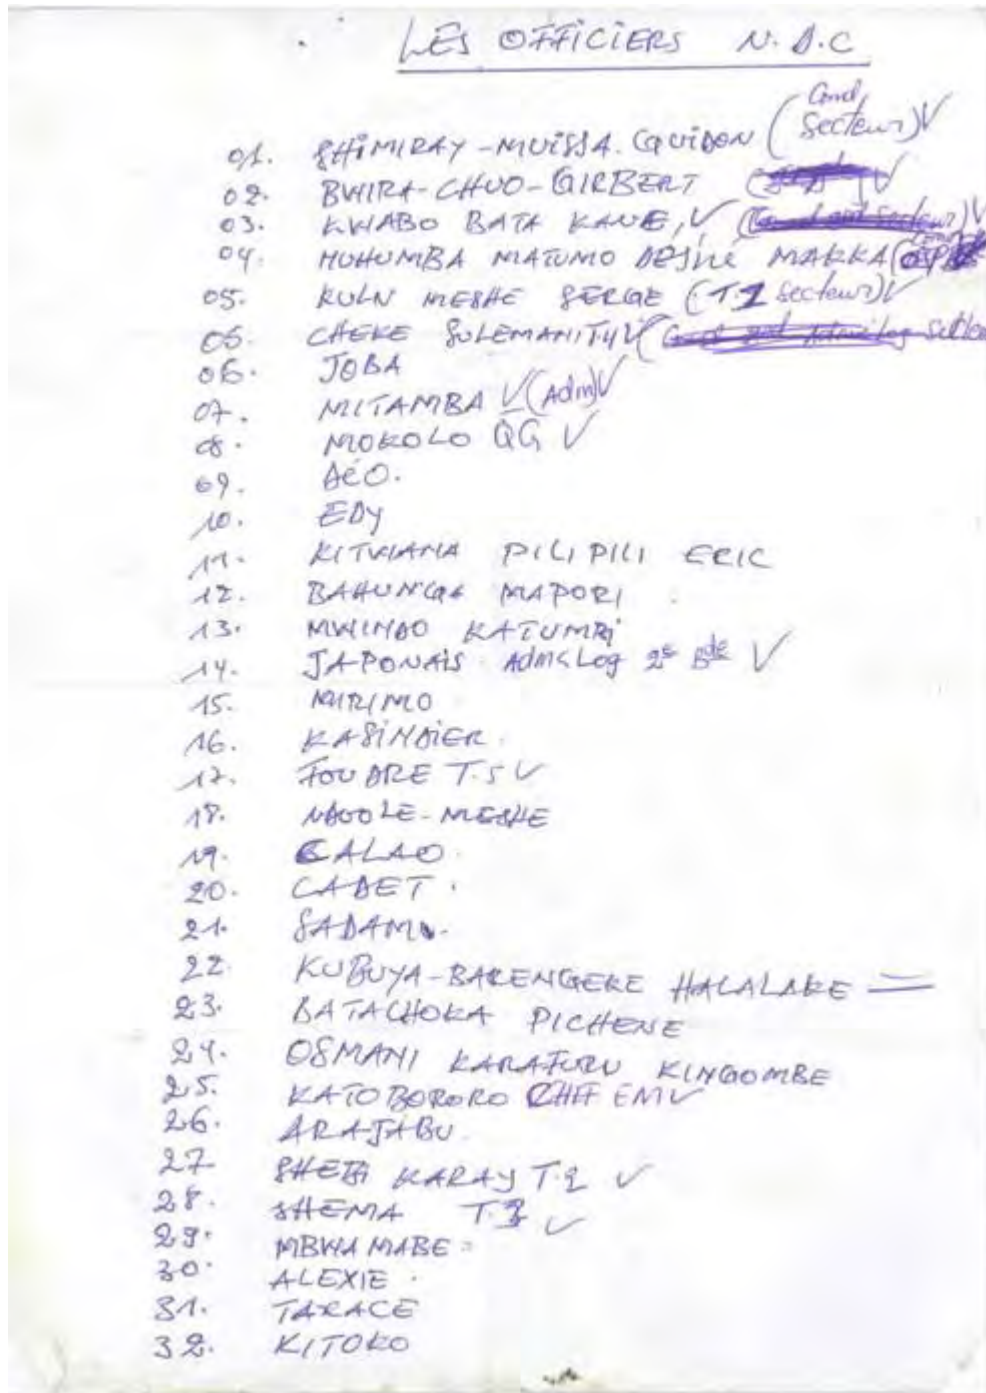 LES OFFICIERS N.D.C
01. SHIMIRAY-MUISSA.GUIDON (Comd, Secteur) V
02. BWIRA-CHUO-GIRBERT V
03. KWABO BATA KANE, V V
04. MUHUMBA MATUMO DÉSIRÉ MAKKA
05. KULN MESHE SERGE (T.2 Secteur) V
05. CHEKE SULEMANI
06. JOBA
07. MITAMBA V (Adm) V
08. MOKOLO QG V
09. DÉO.
10. EDY
11. KITWANA PILI PILI ERIC
12. BAHUNGA MAPORI
13. MWINDO KATUMBI
14. JAPONAIS Adm&Log 2e Bde V
15. MIRIMO
16. KASINDIER.
17. FOUDRE T.5 V
18. NDOOLE-MESHE
19. CALAO.
20. CADET.
21. SADAM.
22. KUBUYA-BARENGEKE HALALAKE =
23. BATACHOKA PICHENE
24. OSMANI KARAFURU KINGOMBE
25. KATOBORORO CHEF EM V
26. ARAJABU
27 SHETA KARAY T.2 V
28. SHEMA T.3 V
29. MBWA MABE
30. ALEXIE.
31. TARACE
32. KITOKO